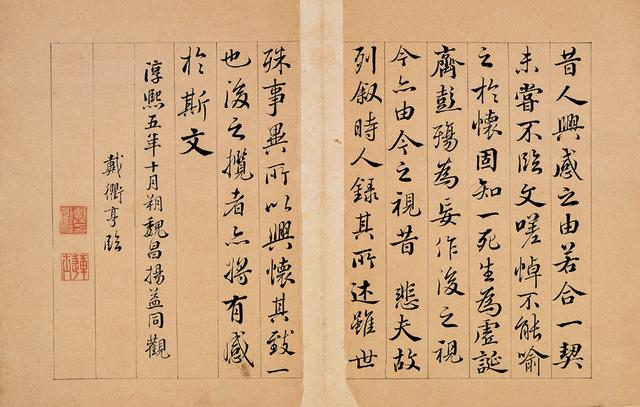 昔人興感之由若合一契
未嘗不臨文嗟悼不能喻
之於懷固知一死生為虛誕
齊彭殤為妄作後之視
今亦由今之視昔 悲夫故
列叙時人錄其所述雖世
殊事異所以興懷其致一
也後之攬者亦將有感
於斯文
淳熙五年十月朔魏昌揚益同觀
戴衢亨臨